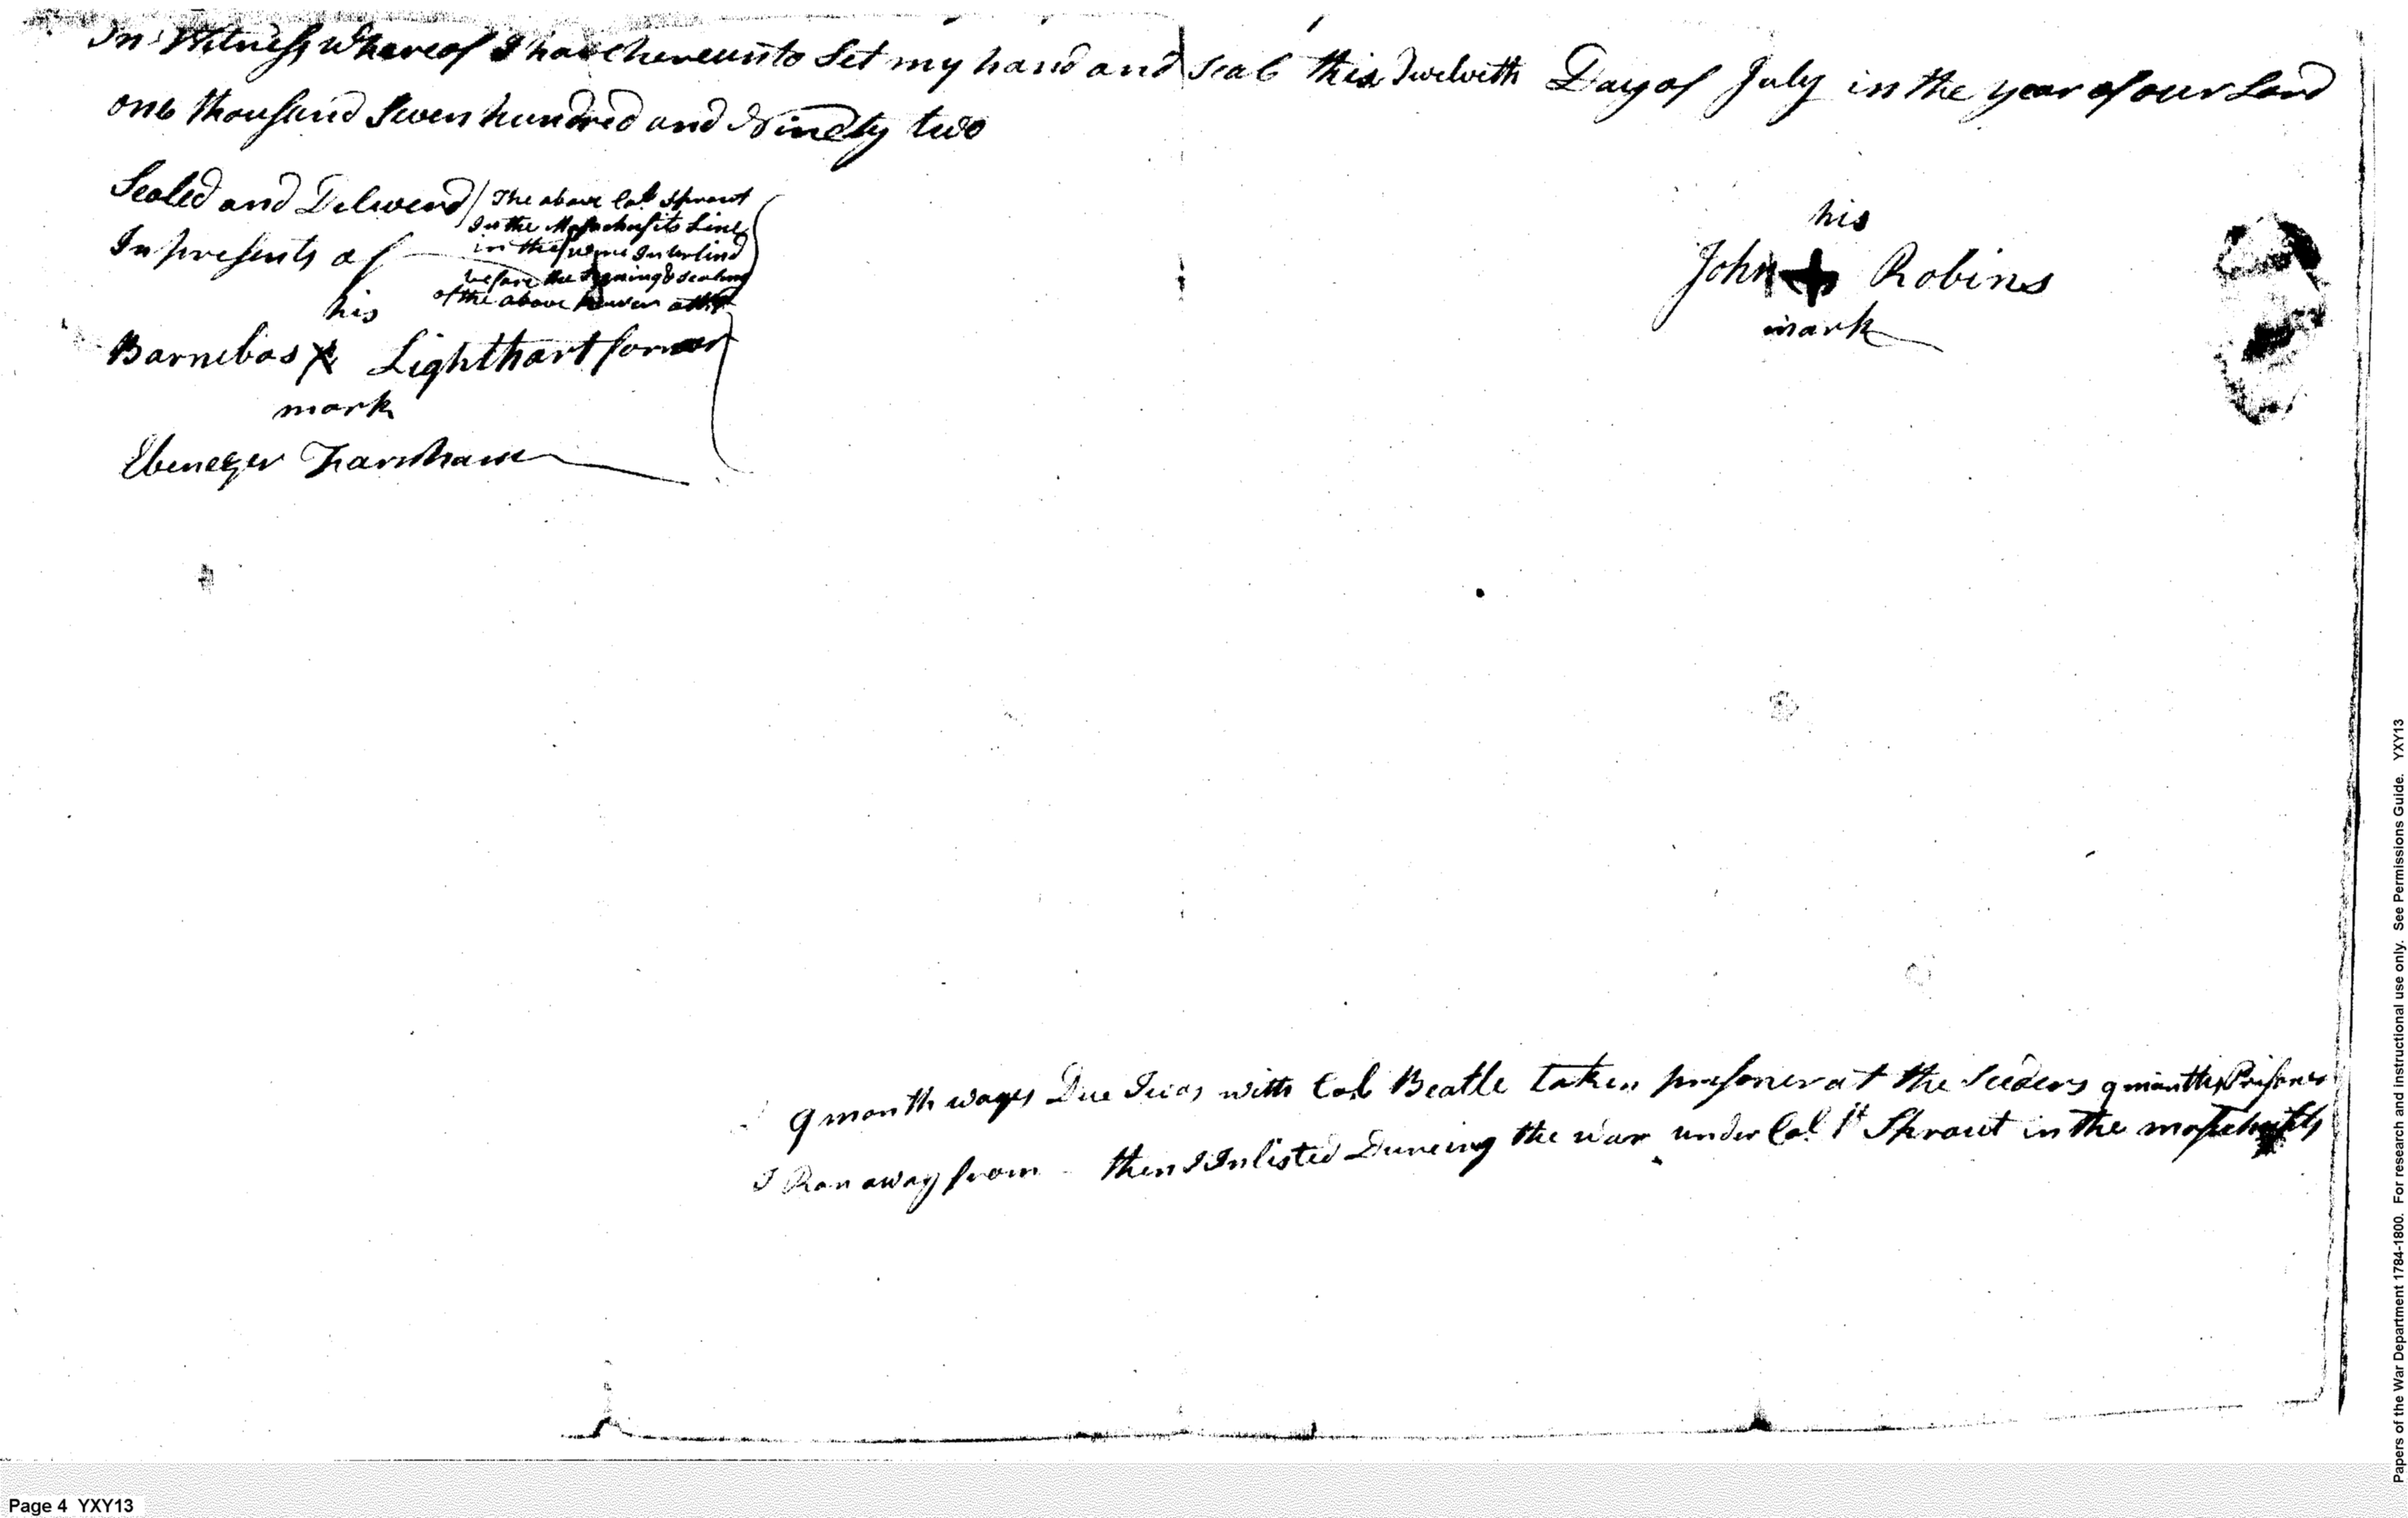 In Witness Whereof I have hereunto Set my hand and seal this Twelveth Day of July in the year of our Lord
one thousand Seven hundred and Ninety two
Sealed and Deliverd
In presents of
The above Col Sprout
In the Massachusits Line
in the same Interlind
before the Signing & sealing
of the above
his
Barnebas X Lighthart
mark
Ebenezer Farnham
his
John + Robins
mark
9 month wages Due I was with Col Beatle taken prisoner at the Seeders 9 months Prisoner
I Ran away from then I Inlisted Dureing the war under Col Sprout in the
Page 4 YXY13
Papers of the War Department 1784-1800. For research and instructional use only. See Permissions Guide. YXY13